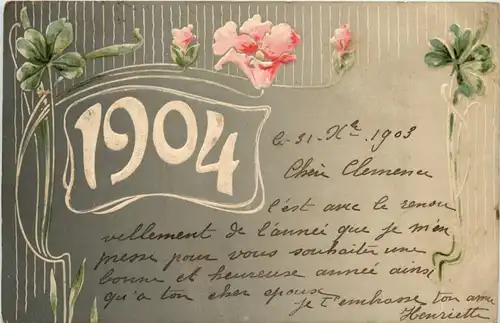 1904
le 31 Xbre 1903
Chère Clemence
c'est avec le renou
vellement de l'année que je m'em
presse pour vous souhaiter une
bonne et heureuse année ainsi
qu'a ton cher epoux
je t'embrasse ton amie
Henriette